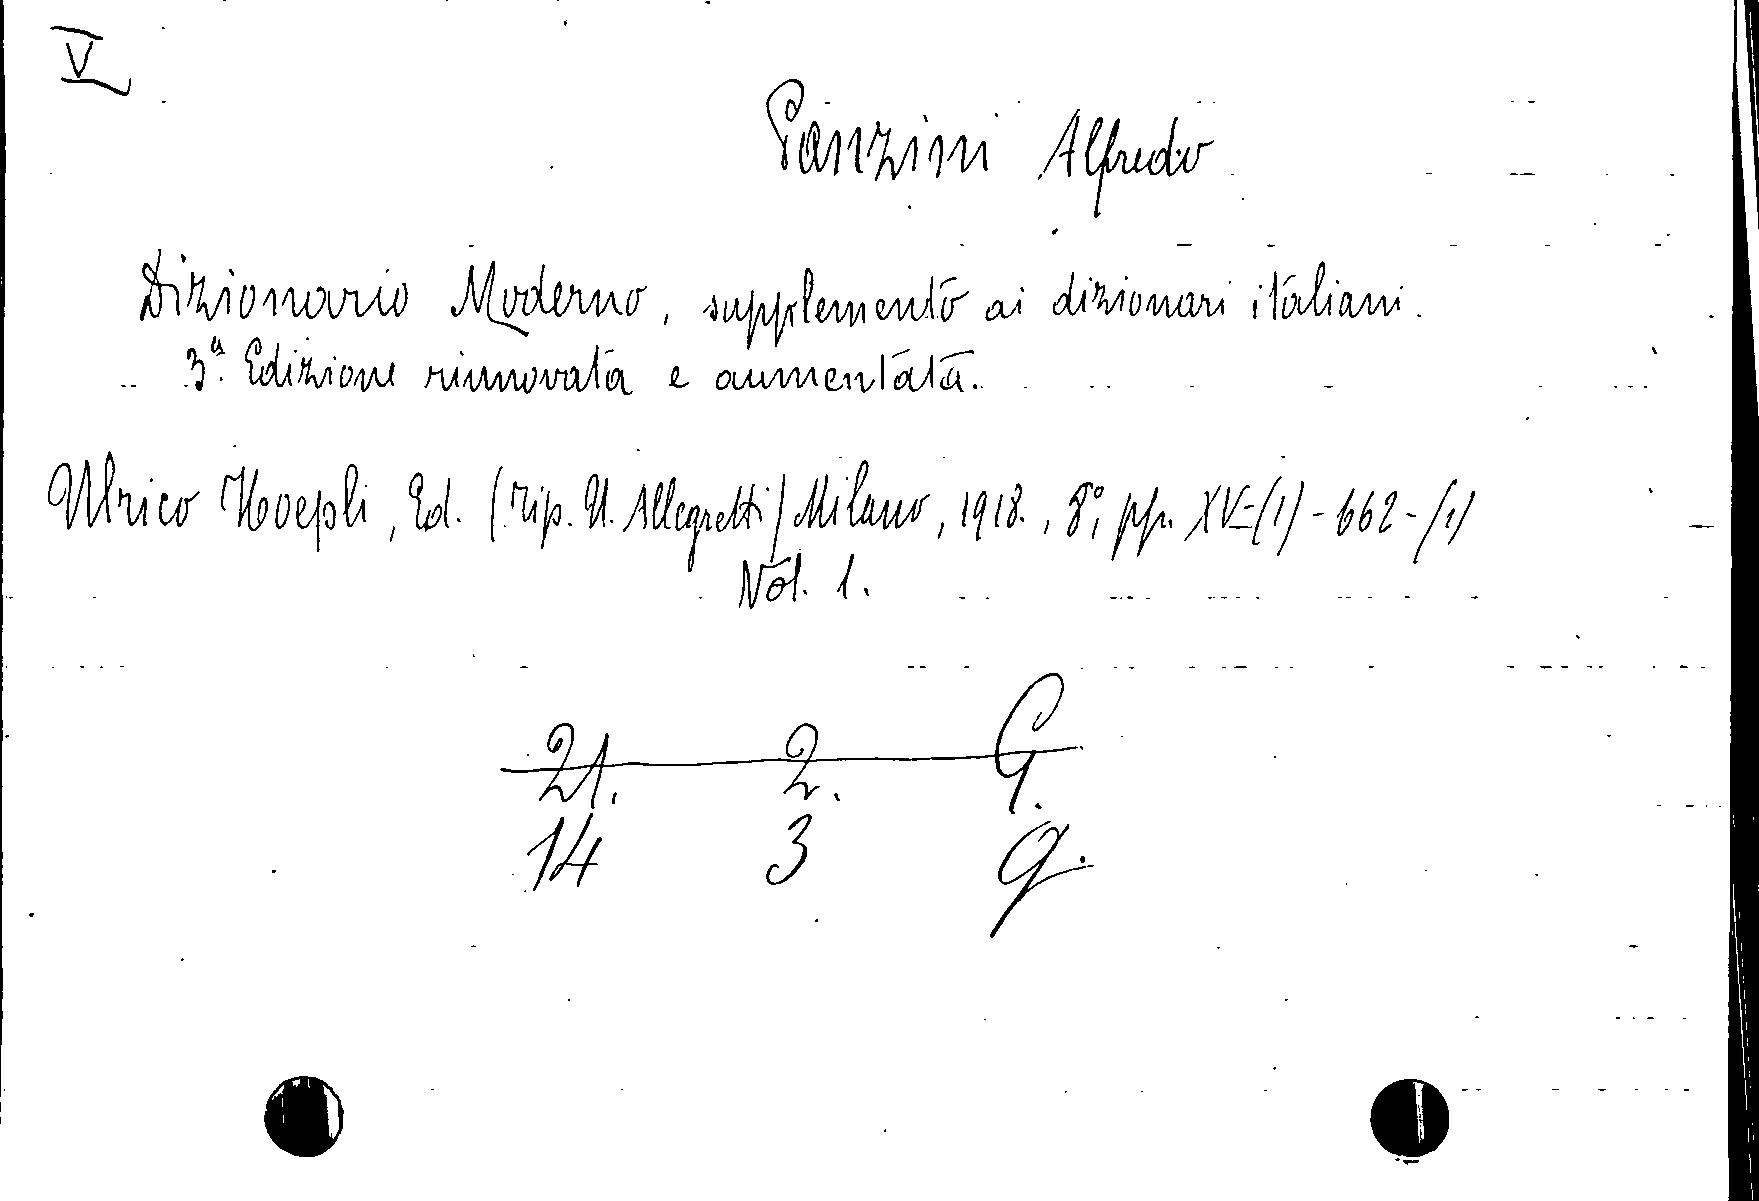 V
Panzini Alfredo
Dizionario Moderno, supplemento ai dizionari italiani.
3ª. Edizione rinnovata e aumentata.
Ulrico Hoepli, Ed. (Tip. U. Allegretti) Milano, 1918., 8°, pp. XV-(1)-662-(1)
Vol. 1.
21. 2. G.
14 3 g.